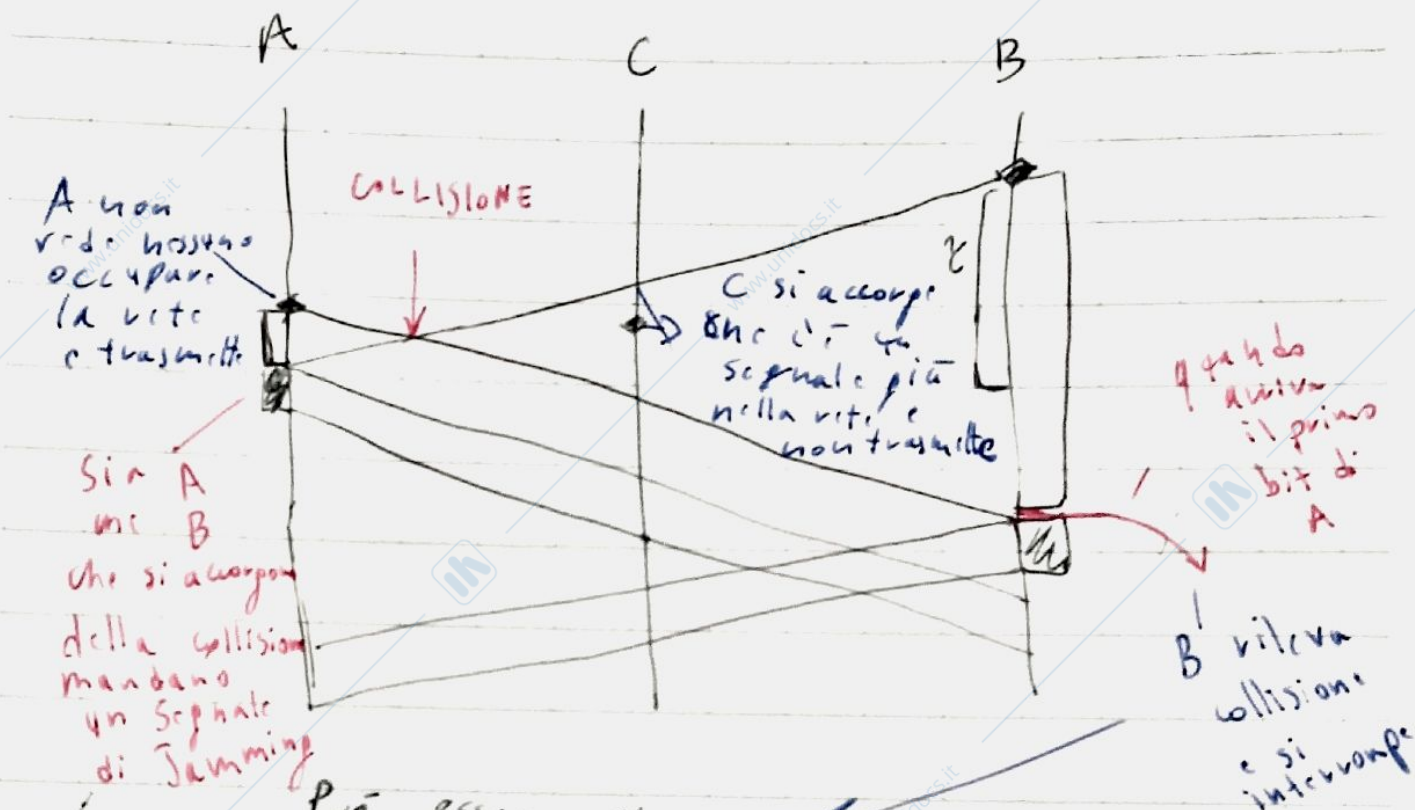 A
C
B
A non
vede nessuno
occupare
la rete
e trasmette
COLLISIONE
τ
C si accorge
che c'è un
segnale più
nella rete e
non trasmette
quando
arriva
il primo
bit di
A
Sia A
che si accorgono
della collisione
mandano
un segnale
di Jamming
B rileva
collisione
e si
interrompe
www.unidoss.it
www.unidoss.it
www.unidoss.it